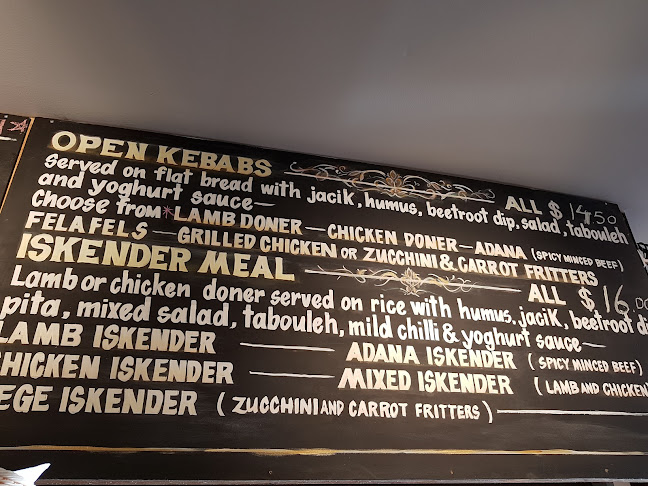 OPEN KEBABS ALL $ 14.50
Served on flat bread with jacik, humus, beetroot dip, salad, tabouleh
and yoghurt sauce—
Choose from *LAMB DONER—CHICKEN DONER—ADANA (SPICY MINCED BEEF)
FELAFELS—GRILLED CHICKEN OR ZUCCHINI & CARROT FRITTERS
ISKENDER MEAL ALL $ 16.00
Lamb or chicken doner served on rice with humus, jacik, beetroot di
pita, mixed salad, tabouleh, mild chilli & yoghurt sauce—
LAMB ISKENDER — ADANA ISKENDER (SPICY MINCED BEEF)
CHICKEN ISKENDER — MIXED ISKENDER (LAMB AND CHICKEN)
EGE ISKENDER (ZUCCHINI AND CARROT FRITTERS)—